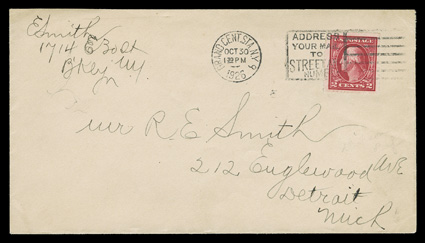 E Smith
1714
Bkly N.Y.
GRAND CENT. STA. N.Y.
OCT 30
PM
1926
ADDRESS
YOUR MAIL
TO
STREET
NUMBER
U.S. POSTAGE
2 CENTS 2
Mr R. E Smith
212 Englewood Ave
Detroit
Mich